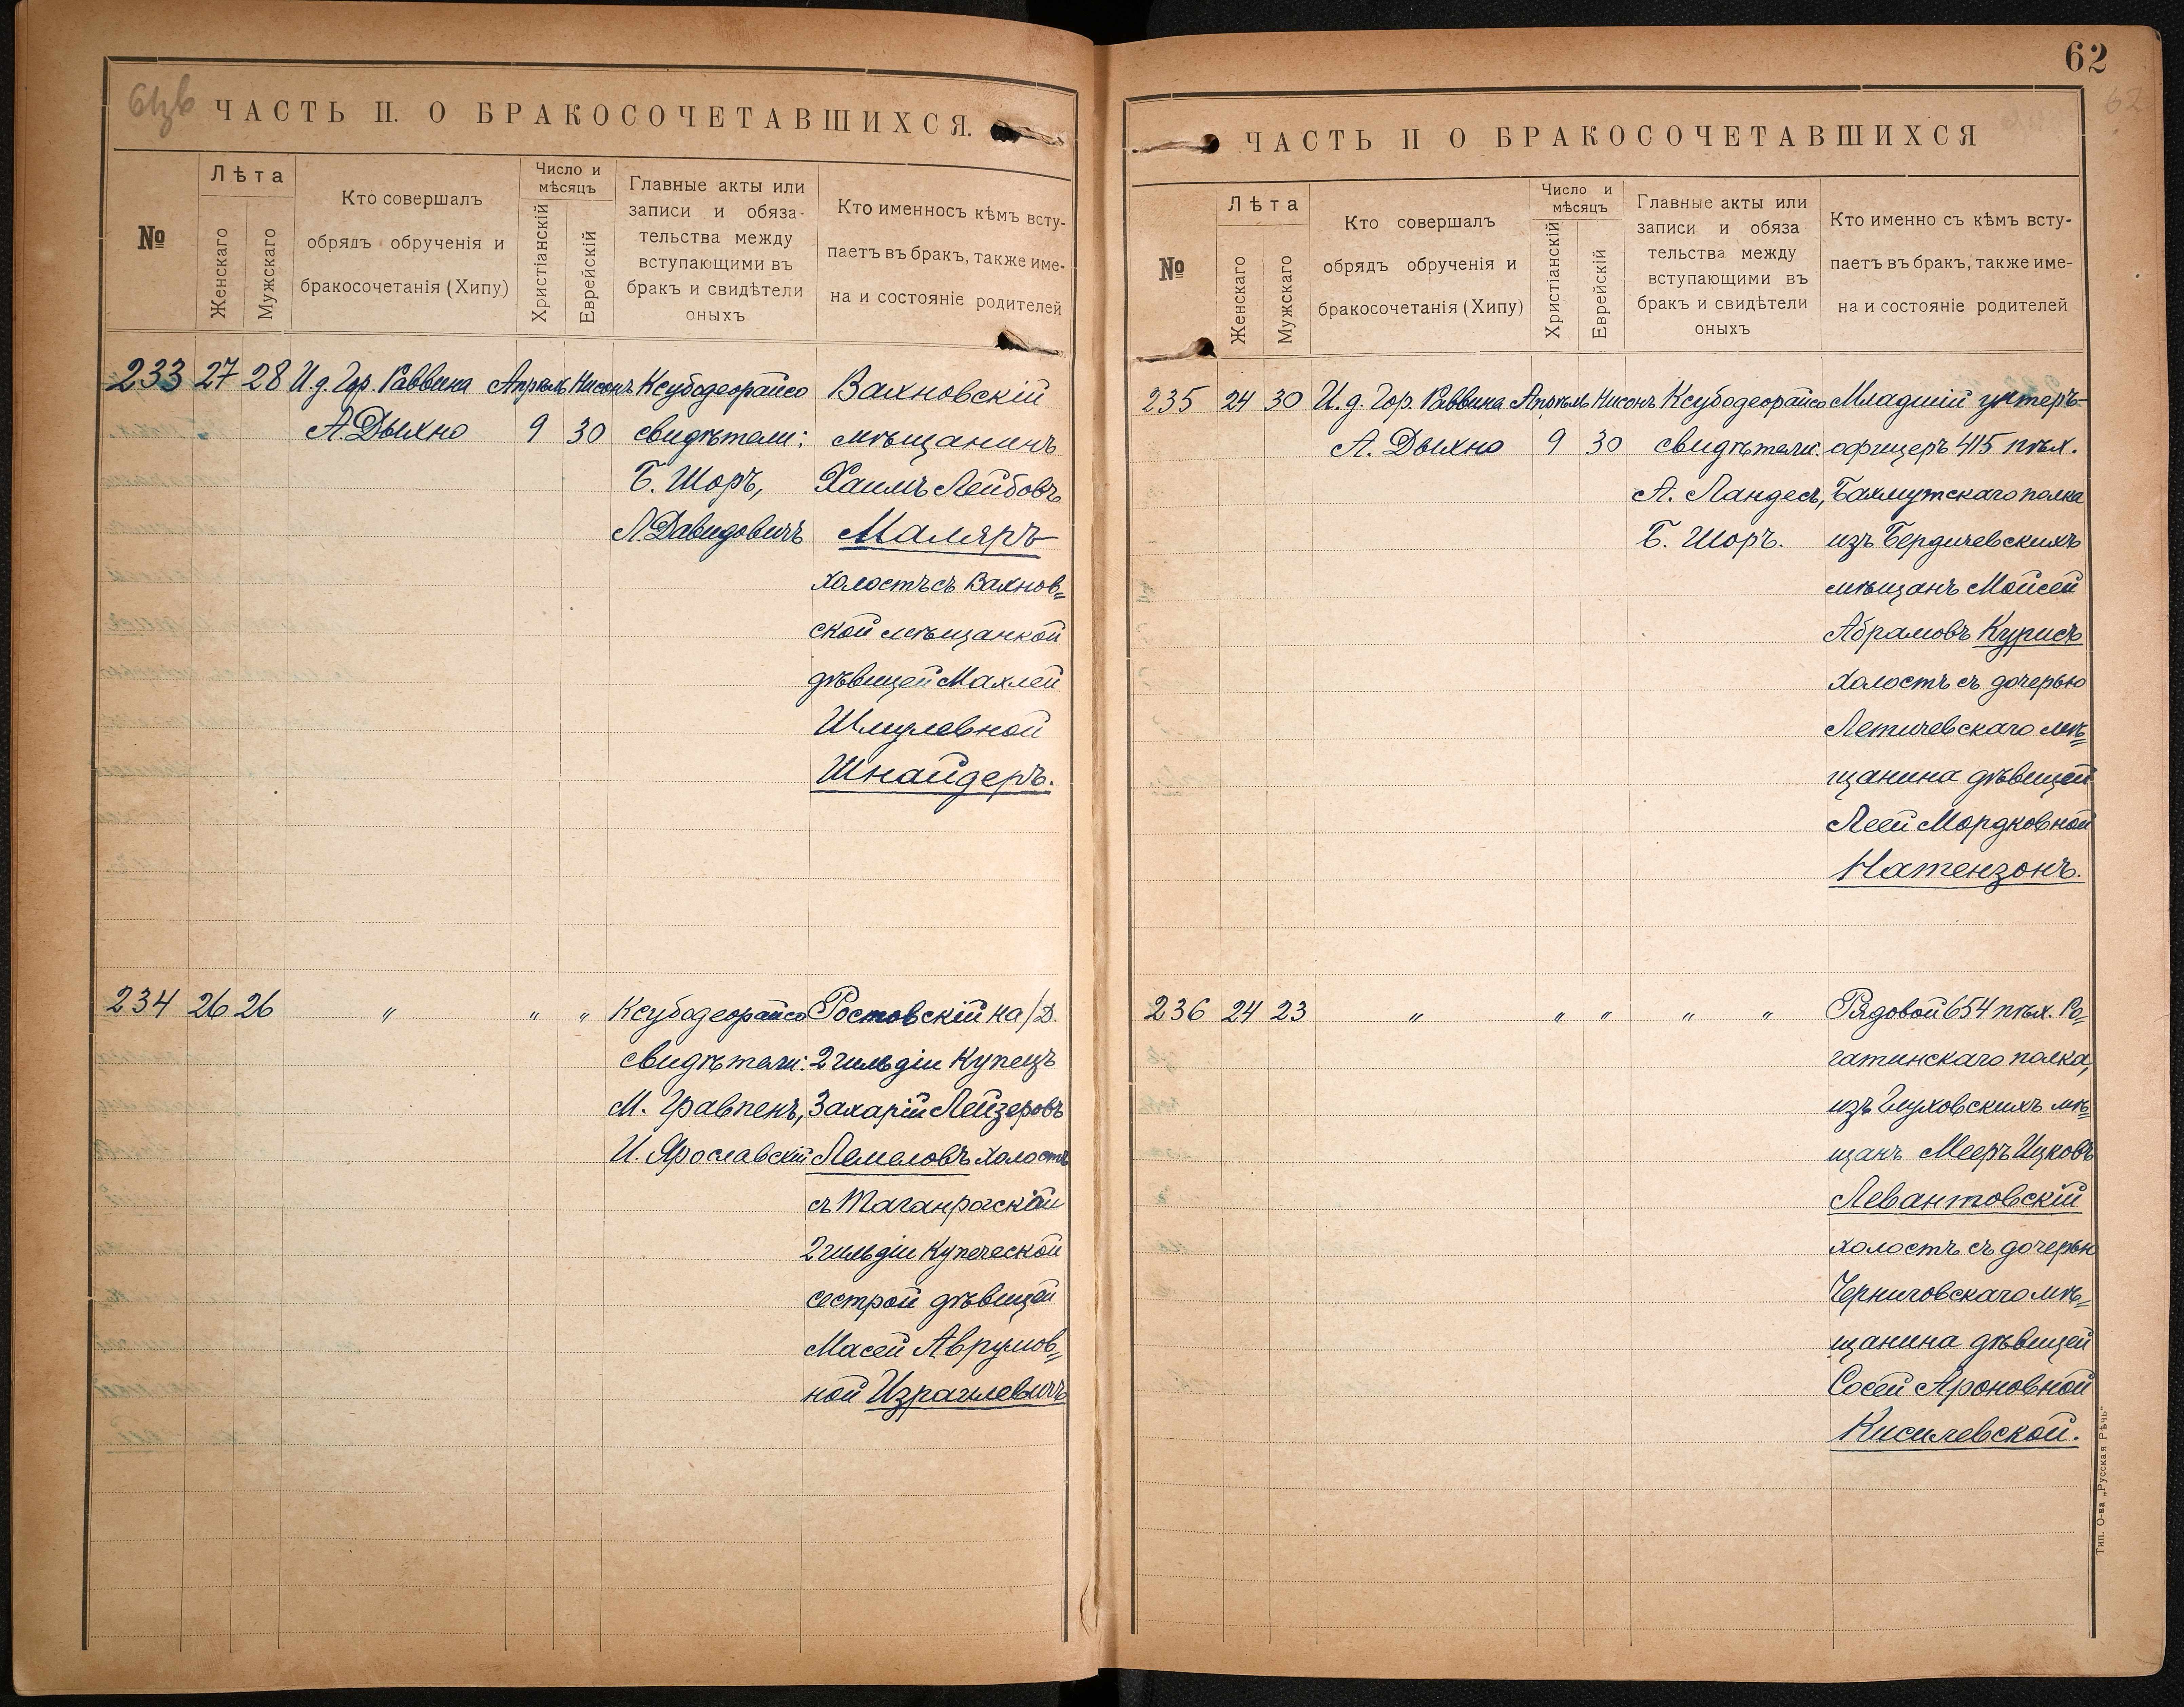 61зв
ЧАСТЬ II. О БРАКОСОЧЕТАВШИХСЯ.
№
Лѣта
Женскаго
Мужскаго
Кто совершалъ
обрядъ обрученія и
бракосочетанія (Хипу)
Число и
мѣсяцъ
Христіанскій
Еврейскій
Главные акты или
записи и обяза-
тельства между
вступающими въ
бракъ и свидѣтели
оныхъ
Кто именносъ кѣмъ всту-
паетъ въ бракъ, также име-
на и состояніе родителей
233 27 28 И.д. Гор. Раввина Апрѣль Нисонъ Ксубодеорайсо Вахновскій
А Дыхно 9 30 свидѣтели: мѣщанинъ
Б. Шоръ, Хаимъ Лейбовъ
Л Давидовичъ Маляръ
холостъ съ Вахнов=
ской мѣщанкой
дѣвицей Махлей
Шмулевной
Шнайдеръ.
234 26 26 " " " Ксубодеорайсо Ростовскій на/Д.
свидѣтели: 2 гильдіи Купецъ
М. Гравпенъ, Захарій Лейзеровъ
И. Ярославскій Лемеловъ холостъ
съ Таганрогской
2 гильдіи Купеческой
сестрой дѣвицей
Масей Аврумов=
ной Израилевичъ
62
62
ЧАСТЬ II О БРАКОСОЧЕТАВШИХСЯ
№
Лѣта
Женскаго
Мужскаго
Кто совершалъ
обрядъ обрученія и
бракосочетанія (Хипу)
Число и
мѣсяцъ
Христіанскій
Еврейскій
Главные акты или
записи и обяза
тельства между
вступающими въ
бракъ и свидѣтели
оныхъ
Кто именно съ кѣмъ всту-
паетъ въ бракъ, также име-
на и состояніе родителей
235 24 30 И.д. Гор. Раввина Апрѣль Нисонъ Ксубодеорайсо Младшій унтеръ-
А. Дыхно 9 30 свидѣтели: офицеръ 415 пѣх.
А. Ландесъ, Бахмутскаго полка
Б. Шоръ. изъ Бердичевскихъ
мѣщанъ Мойсей
Абрамовъ Курисъ
холостъ съ дочерью
Летичевскаго мѣ=
щанина дѣвицей
Леей Мордковной
Натензонъ.
236 24 23 " " " " " Рядовой 654 пѣх. Ро=
гатинскаго полка,
изъ Глуховскихъ мѣ=
щанъ Мееръ Ицковъ
Левантовскій
холостъ съ дочерью
Черниговскаго мѣ=
щанина дѣвицей
Сосей Ароновной
Кисилевской.
Тип. О-ва „Русская Рѣчь"